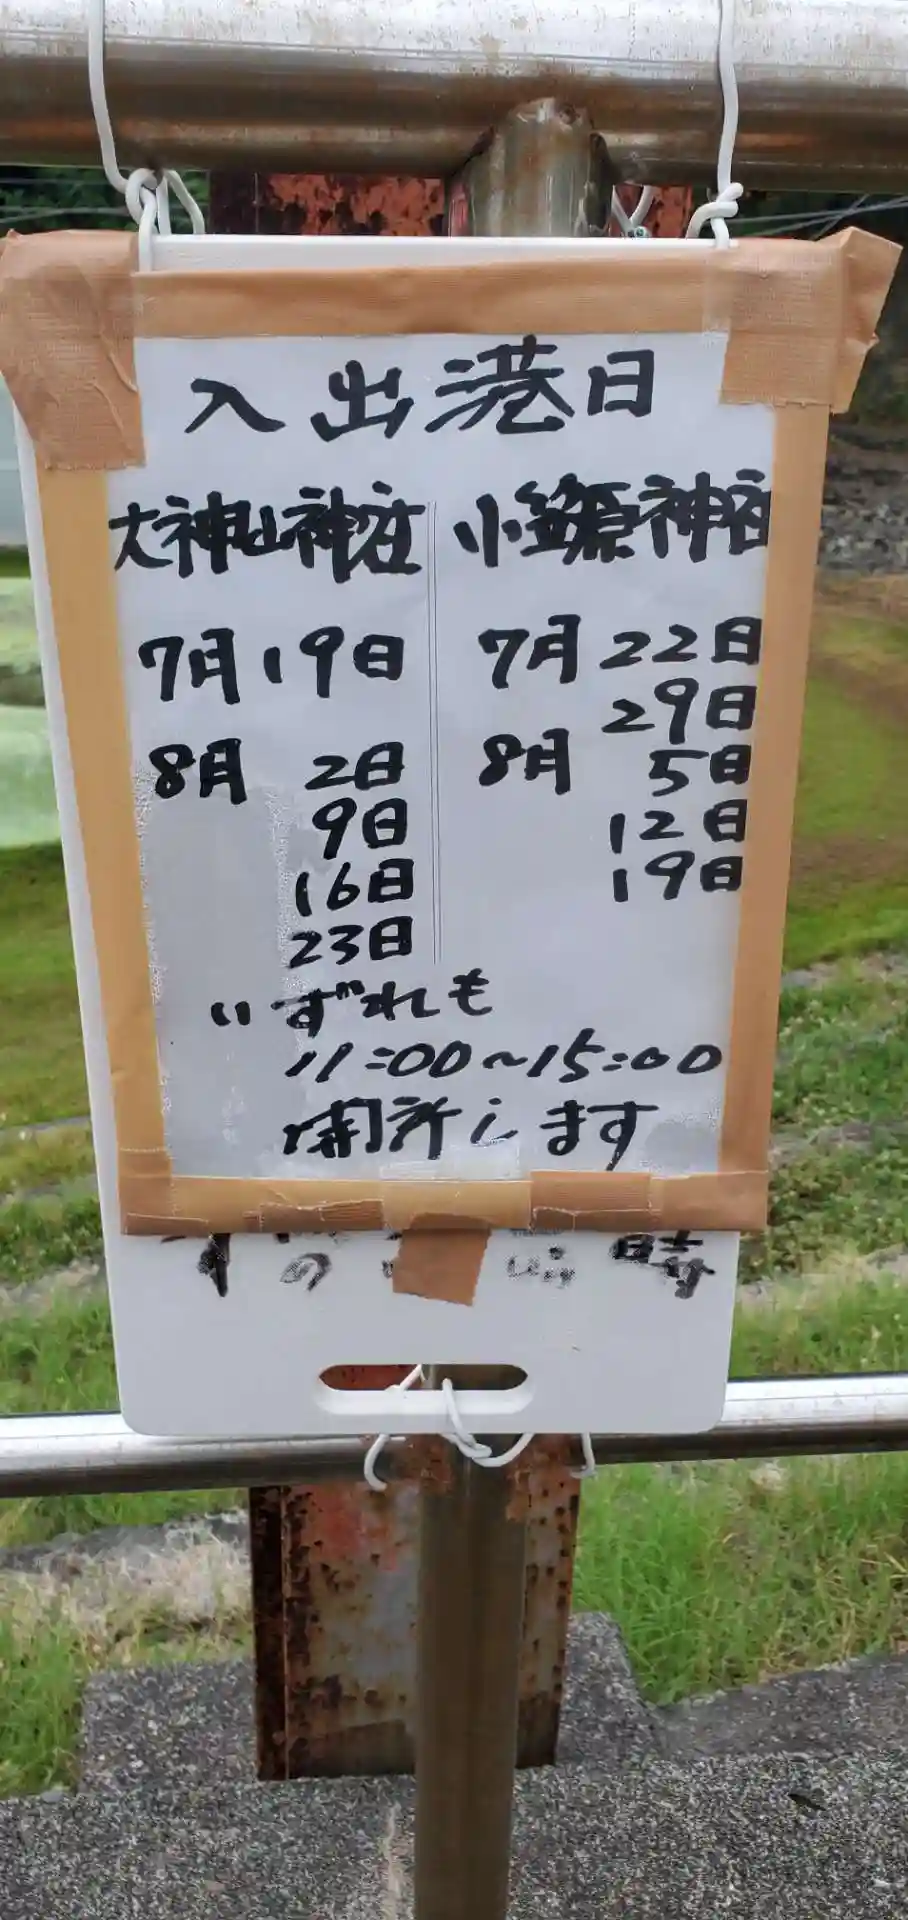 入出港日
大神山神社
7月19日
8月 2日
9日
16日
23日
小笠原神社
7月22日
29日
8月 5日
12日
19日
いずれも
11:00~15:00
開所します
の 時